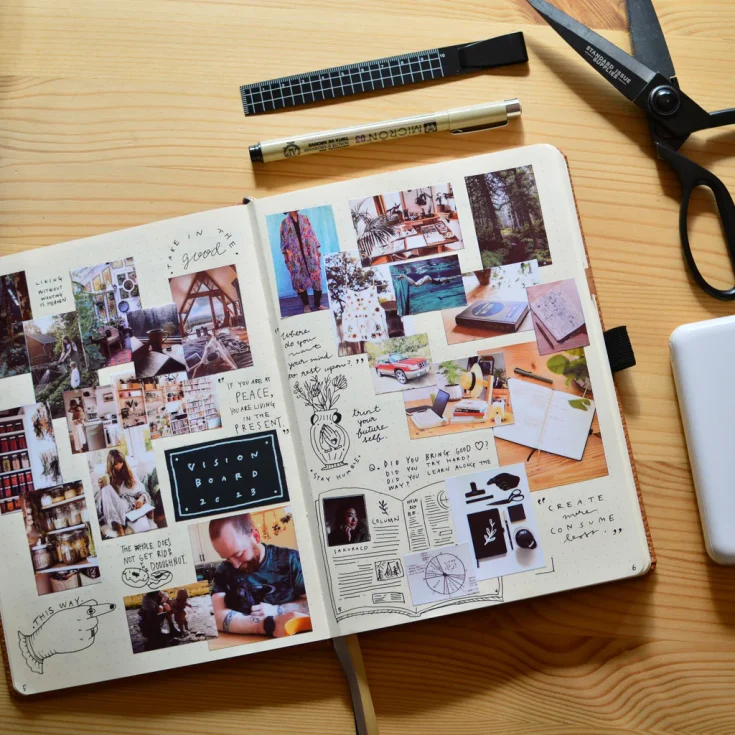 STANDARD ISSUE
SUPPLIER
MICRON 03
TAKE IN THE
good
LIVING
WITHOUT
WANTING
IS
"IF YOU ARE AT
PEACE,
YOU ARE LIVING
IN THE
PRESENT."
VISION
BOARD
2023
THE WHOLE DOES
NOT GET RID OF
DOUGHNUT.
THIS WAY.
5
"Where
do you
want
your mind
to rest upon?"
trust
your
future
self.
STAY HUMBLE.
Q. DID YOU BRING GOOD ♡?
DID YOU TRY HARD?
DID YOU LEARN ALONG THE
WAY?
COLUMN
"CREATE
more
CONSUME
less."
6